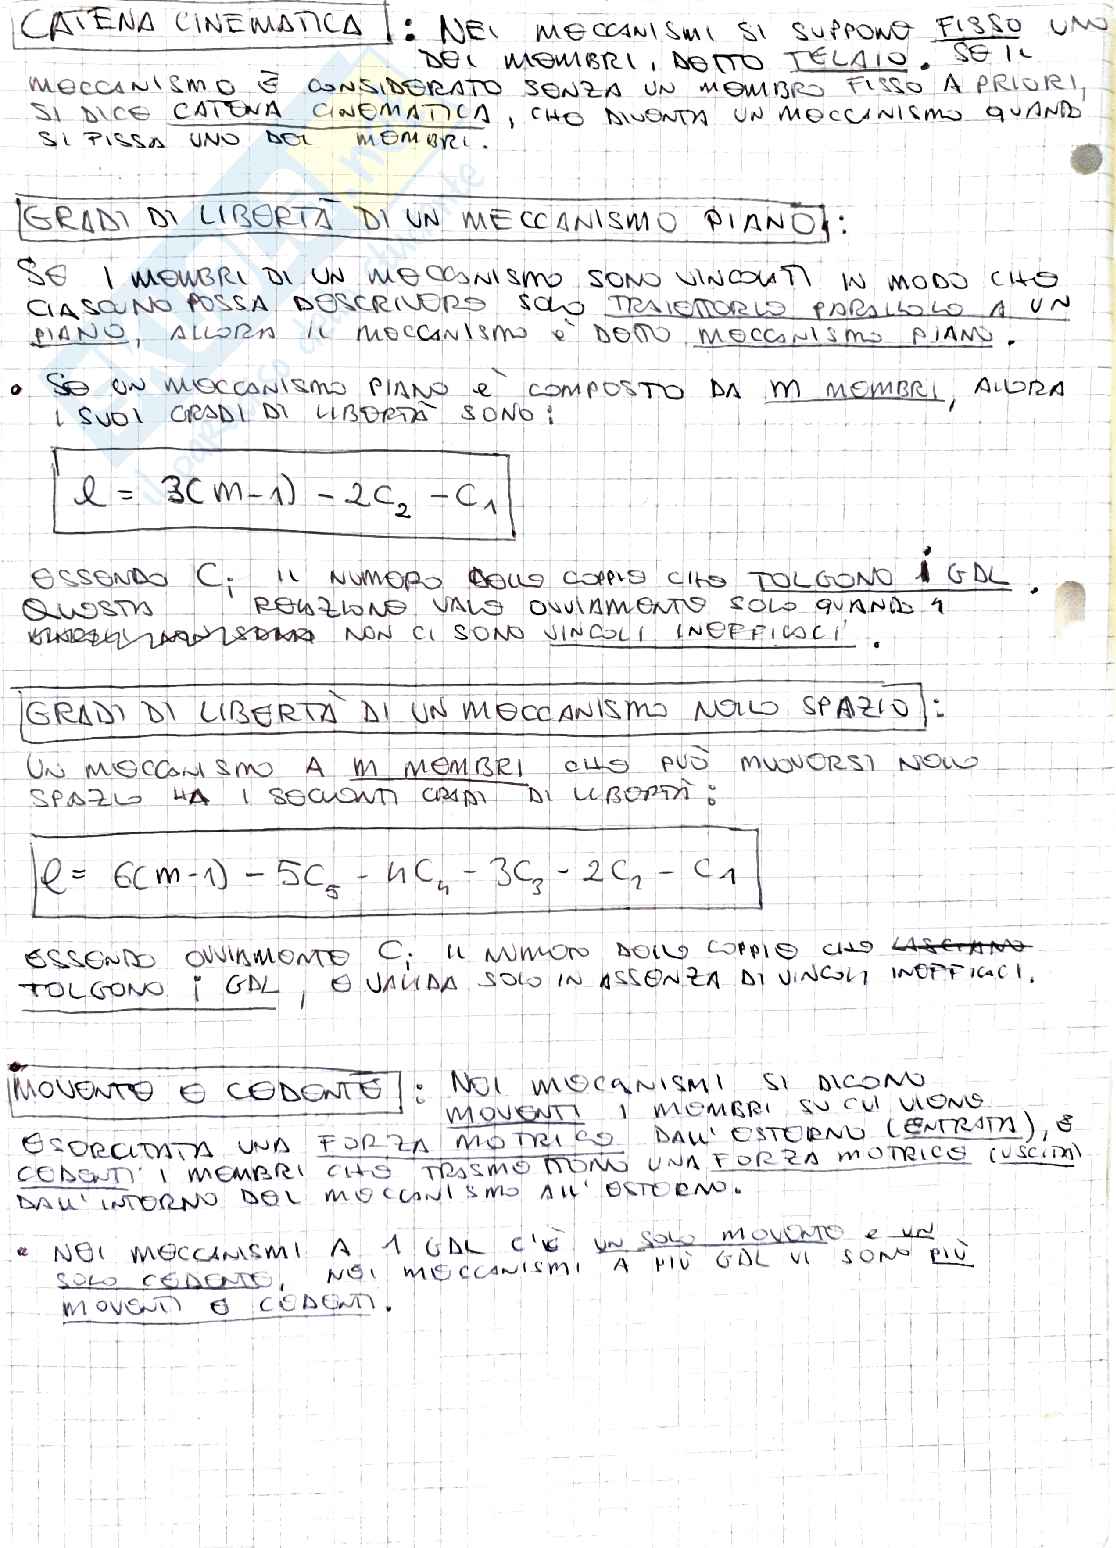 CATENA CINEMATICA : NEI MECCANISMI SI SUPPONE FISSO UNO
DEI MEMBRI, DETTO TELAIO. SE IL
MECCANISMO È CONSIDERATO SENZA UN MEMBRO FISSO A PRIORI,
SI DICE CATENA CINEMATICA, CHE DIVENTA UN MECCANISMO QUANDO
SI FISSA UNO DEI MEMBRI.
GRADI DI LIBERTÀ DI UN MECCANISMO PIANO :
SE I MEMBRI DI UN MECCANISMO SONO VINCOLATI IN MODO CHE
CIASCUNO POSSA DESCRIVERE SOLO TRAIETTORIE PARALLELE A UN
PIANO, ALLORA IL MECCANISMO È DETTO MECCANISMO PIANO.
• SE UN MECCANISMO PIANO È COMPOSTO DA m MEMBRI, ALLORA
I SUOI GRADI DI LIBERTÀ SONO:
l = 3(m-1) - 2C₂ - C₁
ESSENDO Cᵢ IL NUMERO DELLE COPPIE CHE TOLGONO i GDL.
QUESTA RELAZIONE VALE OVVIAMENTE SOLO QUANDO
NON CI SONO VINCOLI INEFFICACI.
GRADI DI LIBERTÀ DI UN MECCANISMO NELLO SPAZIO :
UN MECCANISMO A m MEMBRI CHE PUÒ MUOVERSI NELLO
SPAZIO HA I SEGUENTI GRADI DI LIBERTÀ:
l = 6(m-1) - 5C₅ - 4C₄ - 3C₃ - 2C₂ - C₁
ESSENDO OVVIAMENTE Cᵢ IL NUMERO DELLE COPPIE CHE LASCIANO
TOLGONO i GDL, E VALIDA SOLO IN ASSENZA DI VINCOLI INEFFICACI.
MOVENTE E CEDENTE : NEI MECCANISMI SI DICONO
MOVENTI I MEMBRI SU CUI VIENE
ESERCITATA UNA FORZA MOTRICE DALL'ESTERNO (ENTRATA), E
CEDENTI I MEMBRI CHE TRASMETTONO UNA FORZA MOTRICE (USCITA)
DALL'INTERNO DEL MECCANISMO ALL'ESTERNO.
• NEI MECCANISMI A 1 GDL C'È UN SOLO MOVENTE E UN
SOLO CEDENTE, NEI MECCANISMI A PIÙ GDL VI SONO PIÙ
MOVENTI E CEDENTI.